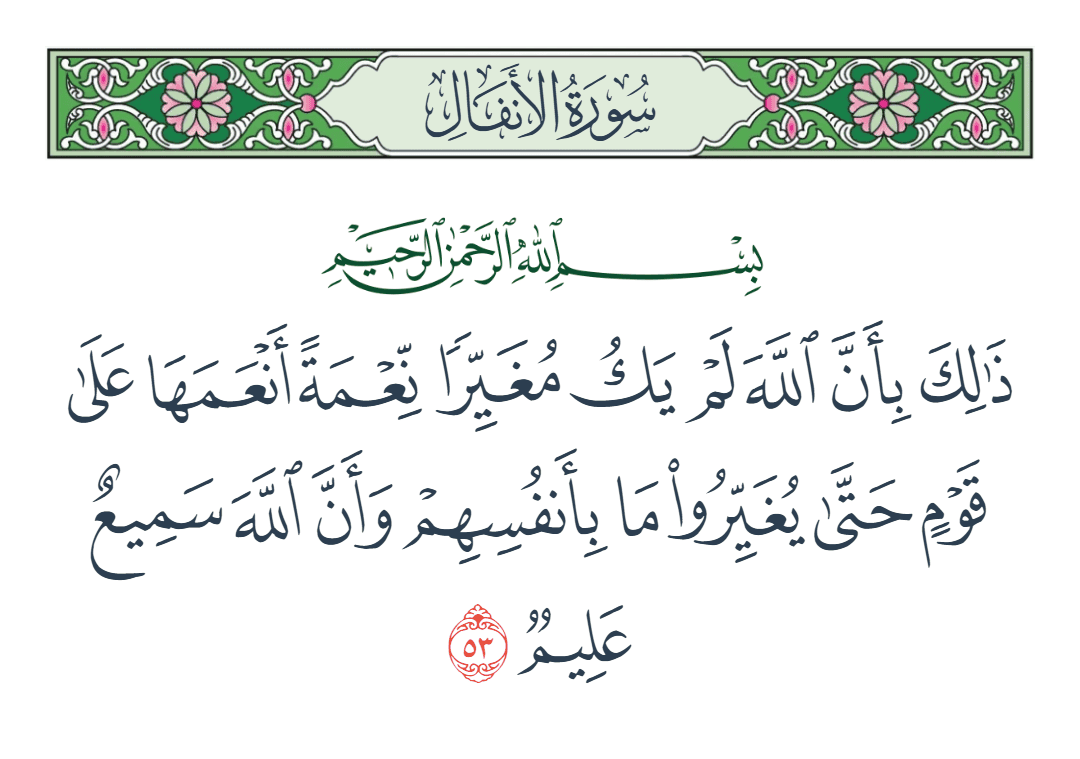 سُورَةُ الأَنفَالِ
بِسْمِ ٱللَّهِ ٱلرَّحْمَٰنِ ٱلرَّحِيمِ
ذَٰلِكَ بِأَنَّ ٱللَّهَ لَمْ يَكُ مُغَيِّرًا نِّعْمَةً أَنْعَمَهَا عَلَىٰ
قَوْمٍ حَتَّىٰ يُغَيِّرُوا۟ مَا بِأَنفُسِهِمْ وَأَنَّ ٱللَّهَ سَمِيعٌ
عَلِيمٌ ٥٣